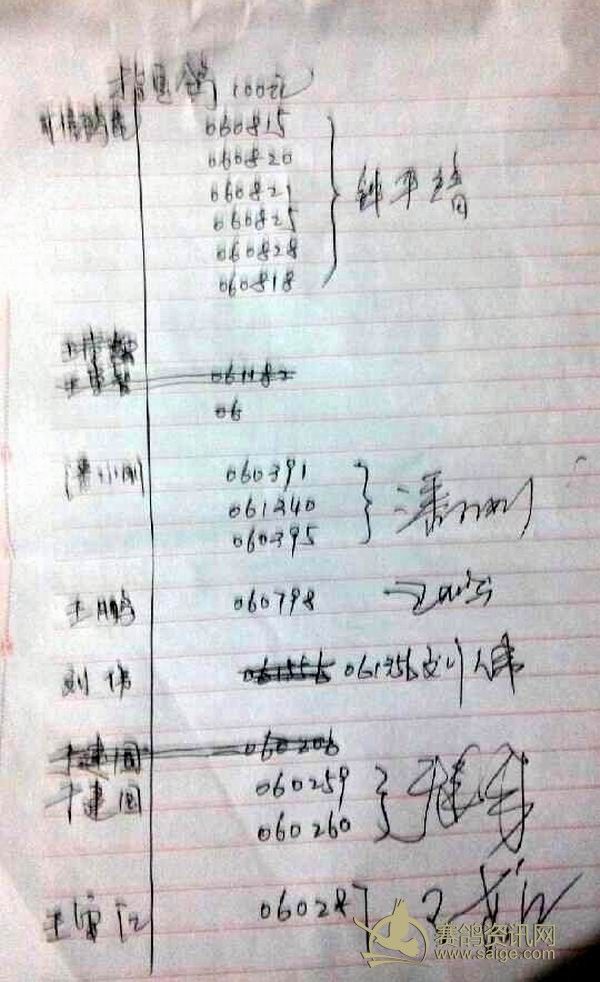 指定鸽 100元
060815
060820
060821
060825
060828
060818
061182
06
潘小刚 060391 潘小刚
061340
060395
王鹏 060798
刘伟 061356 061356 刘伟
于建国 060206
于建国 060259
060260
王宝江 060287
赛鸽资讯网
www.saige.com